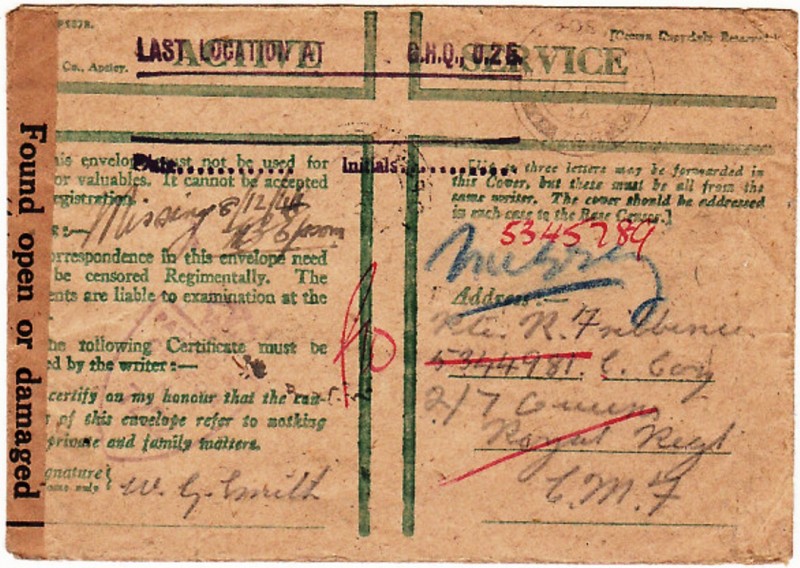 [Crown Copyright Reserved
Co., Apsley.
LAST LOCATION AT G.H.Q., 02E.
ACTIVE SERVICE
Found open or damaged
his envelope must not be used for
or valuables. It cannot be accepted
egistration.
Date............... Initials...............
Missing 8/12/44
orrespondence in this envelope need
be censored Regimentally. The
nts are liable to examination at the
he following Certificate must be
ed by the writer:—
certify on my honour that the con-
s of this envelope refer to nothing
private and family matters.
gnature
ame only
W. G. Smith
to three letters may be forwarded in
this Cover, but these must be all from the
same writer. The cover should be addressed
in each case to the Base Censor.]
5345789
Missing
Address:—
Pte. R.
5344981. C. Coy
2/7 Queens
Royal Regt
C.M.F